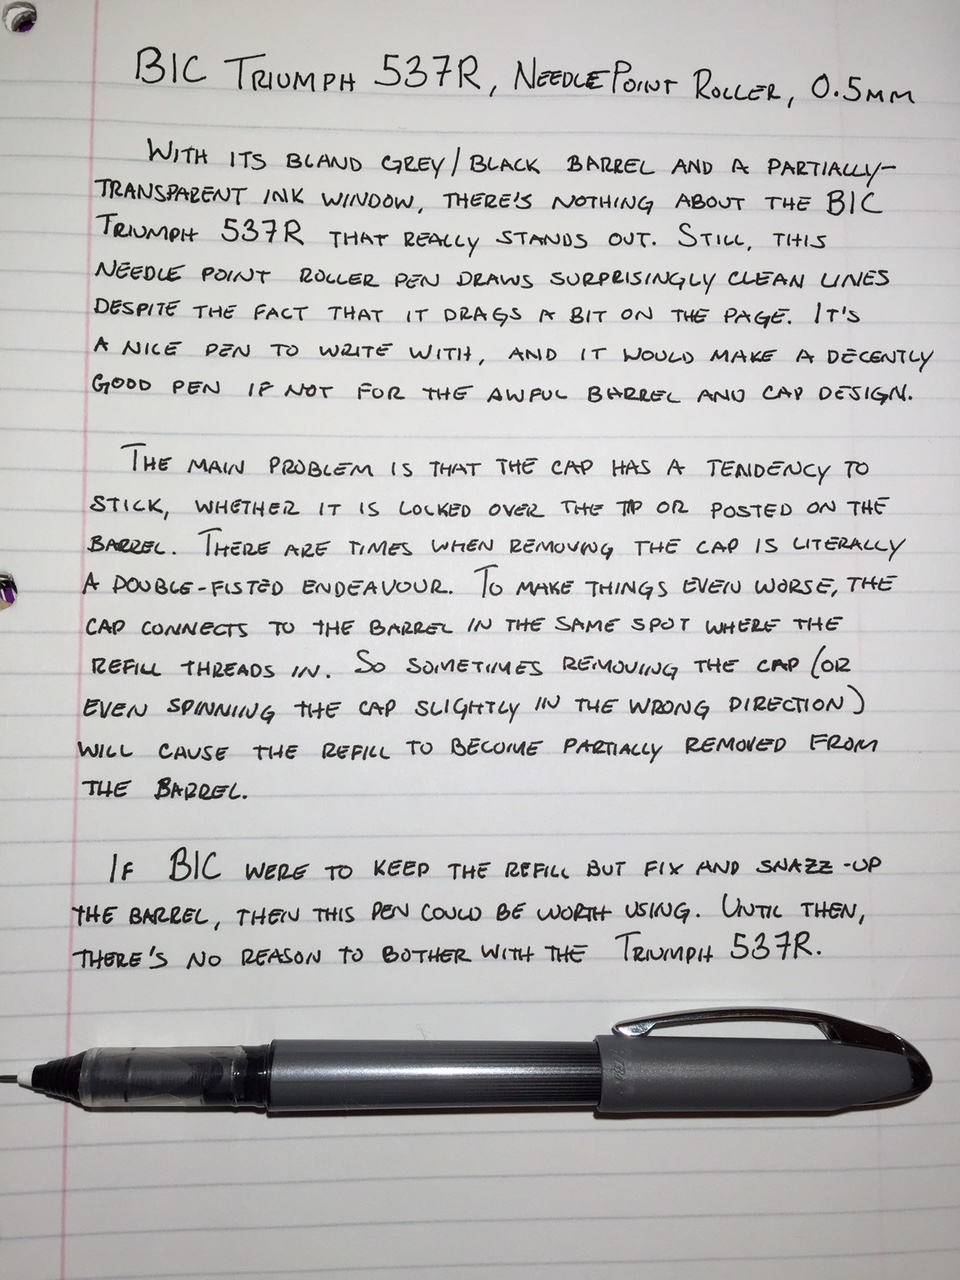 BIC TRIUMPH 537R, NEEDLEPOINT ROLLER, 0.5MM
WITH ITS BLAND GREY/BLACK BARREL AND A PARTIALLY-
TRANSPARENT INK WINDOW, THERE'S NOTHING ABOUT THE BIC
TRIUMPH 537R THAT REALLY STANDS OUT. STILL, THIS
NEEDLE POINT ROLLER PEN DRAWS SURPRISINGLY CLEAN LINES
DESPITE THE FACT THAT IT DRAGS A BIT ON THE PAGE. IT'S
A NICE PEN TO WRITE WITH, AND IT WOULD MAKE A DECENTLY
GOOD PEN IF NOT FOR THE AWFUL BARREL AND CAP DESIGN.
THE MAIN PROBLEM IS THAT THE CAP HAS A TENDENCY TO
STICK, WHETHER IT IS LOCKED OVER THE TIP OR POSTED ON THE
BARREL. THERE ARE TIMES WHEN REMOVING THE CAP IS LITERALLY
A DOUBLE-FISTED ENDEAVOUR. TO MAKE THINGS EVEN WORSE, THE
CAP CONNECTS TO THE BARREL IN THE SAME SPOT WHERE THE
REFILL THREADS IN. SO SOMETIMES REMOVING THE CAP (OR
EVEN SPINNING THE CAP SLIGHTLY IN THE WRONG DIRECTION)
WILL CAUSE THE REFILL TO BECOME PARTIALLY REMOVED FROM
THE BARREL.
IF BIC WERE TO KEEP THE REFILL BUT FIX AND SNAZZ-UP
THE BARREL, THEN THIS PEN COULD BE WORTH USING. UNTIL THEN,
THERE'S NO REASON TO BOTHER WITH THE TRIUMPH 537R.